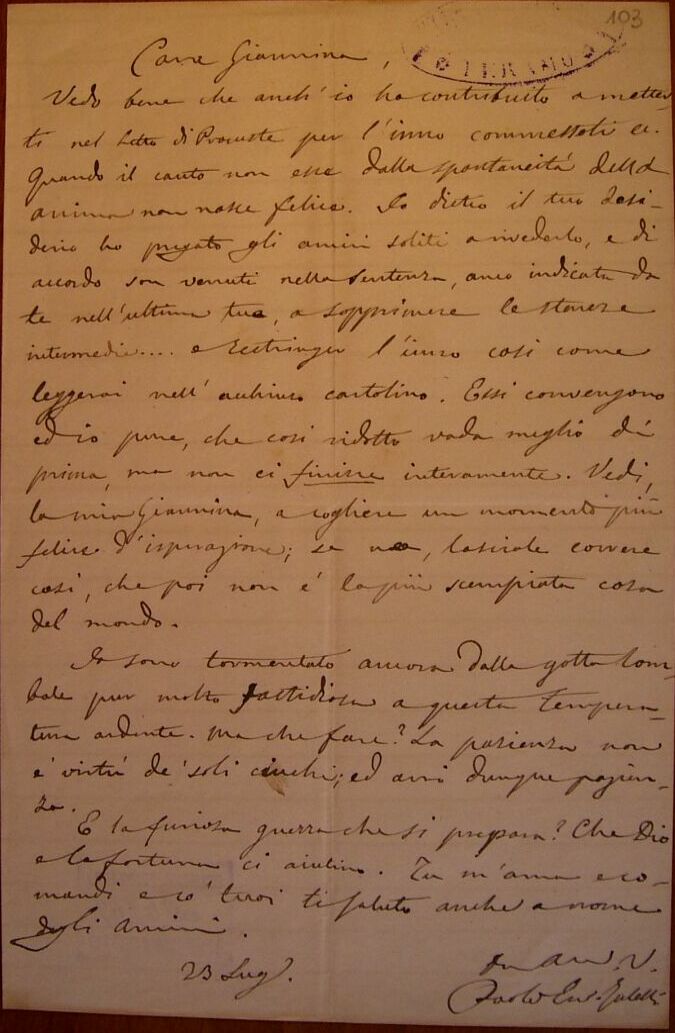 103
TERAMO
Cara Giannina,
Vedo bene che anch'io ho contribuito a metter-
ti nel letto di Procuste per l'inno commessoti ec.
Quando il canto non esce dalla spontaneità dell'
anima non nasce felice. Io dietro il tuo desi-
derio ho pregato gli amici soliti a rivederlo, e di
accordo son venuti nella sentenza, anco indicata da
te nell'ultima tua, a sopprimere le stanze
intermedie.... e restringer l'inno così come
leggerai nell'acchiuso cartolino. Essi convengono
ed io pure, che così ridotto vada meglio di
prima, ma non ci finisce interamente. Vedi,
la mia Giannina, a cogliere un momento più
felice d'ispirazione; se no, lascialo correre
così, che poi non è la più sempiata cosa
del mondo.
Io sono tormentato ancora dalla gotta lom-
bale pur molto fastidiosa a questa tempera-
tura ardente. Ma che fare? La pazienza non
è virtù de' soli ciuchi; ed avrò dunque pazien-
za.
E la furiosa guerra che si prepara? Che Dio
e la fortuna ci aiutino. Tu m'ama e co-
mandi e co' tuoi ti saluto anche a nome
degli amici.
23 Lug.
Paolo